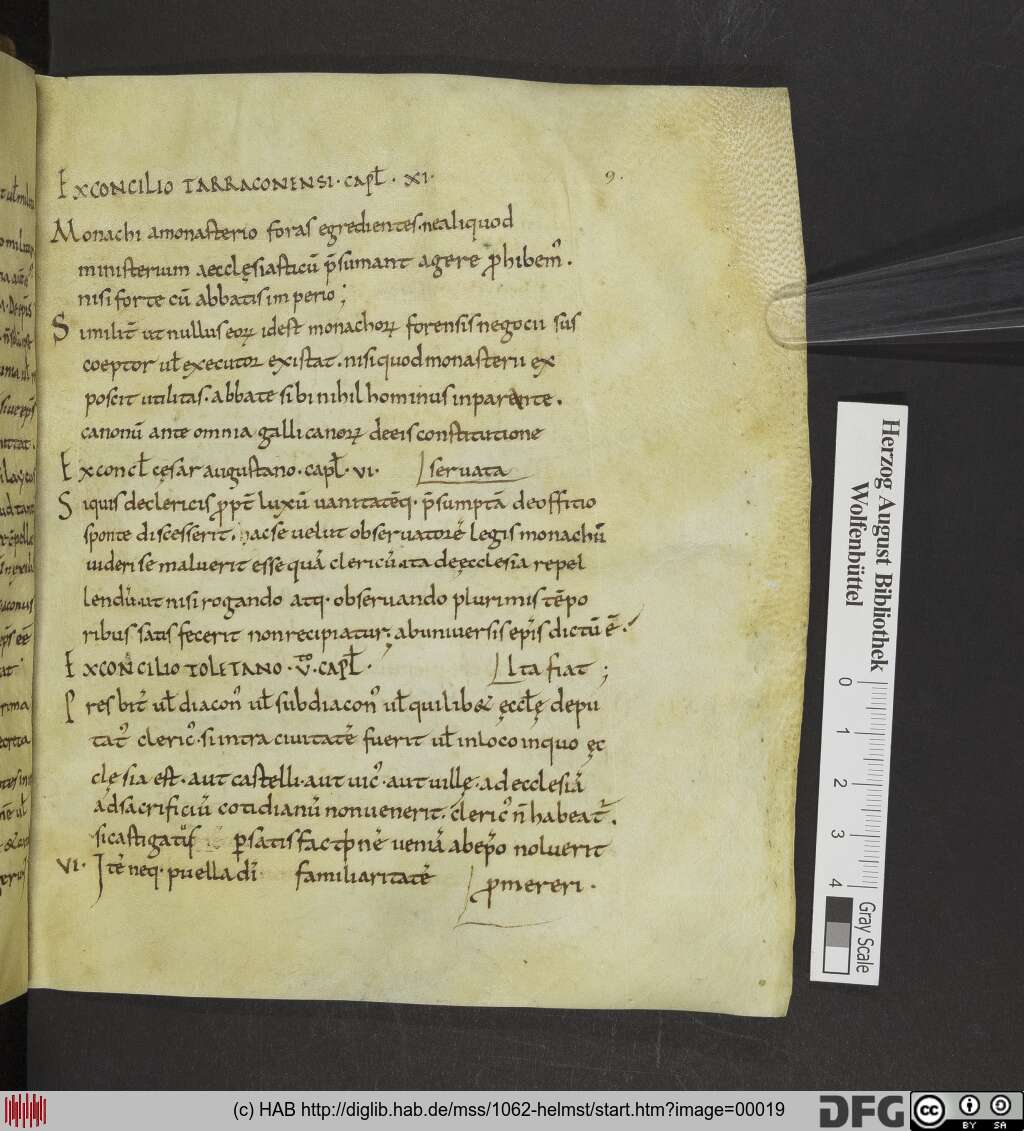 9.
EXCONCILIO TARRACONENSI · CAPŁ · XI ·
Monachi amonasterio foras egredientes · nealiquod
ministerium aecclęsiasticū p̄sumant agere ꝓhibem᾽ .
nisi forte cū abbatis imperio ;
Similit̄ ut nullus eoꝝ idest monachoꝝ forensis negocii sus
coeptor uł executor existat . nisi quod monasterii ex
poscit utilitas . abbate sibi nihilhominus inparente .
canonū ante omnia gallicanoꝝ deeis constitutione
Exconcł cęsaraugustano · capł · VI · seruata
Siquis declericis ꝓpt̄ luxū uanitatēq · p̄sumptā deoffitio
sponte discesserit . hacse uelut obseruatorē legis monachū
uideri se maluerit esse quā clericū . ita deęcclesia repel
lendū . ut nisi rogando atq · obseruando plurimis tēpo
ribus satis fecerit non recipiatur ; abuniuersis ep̄is dictū ē .
EXCONCILIO TOLETANO · V̊ · CAPŁ · Ita fiat ;
Presbit̄ uł diacon᾽ uł subdiacon᾽ uł quilib& ęccłę depu
tat᾽ cleric᾽ . si intra ciuitatē fuerit uł inloco inquo ęc
clęsia est . aut castelli . aut uic᾽ . aut uillę . ad ecclesiā
ad sacrificiū cotidianū nonuenerit . cleric᾽ n̄ habeat᾽ .
si castigat᾽ ꝑ satisfactionē ueniā abep̄o noluerit
VI · Itē neq · puella dī familiaritatē ꝓmereri .
Herzog August Bibliothek
Wolfenbüttel
0 1 2 3 4
Gray Scale
(c) HAB http://diglib.hab.de/mss/1062-helmst/start.htm?image=00019
DFG
cc BY SA